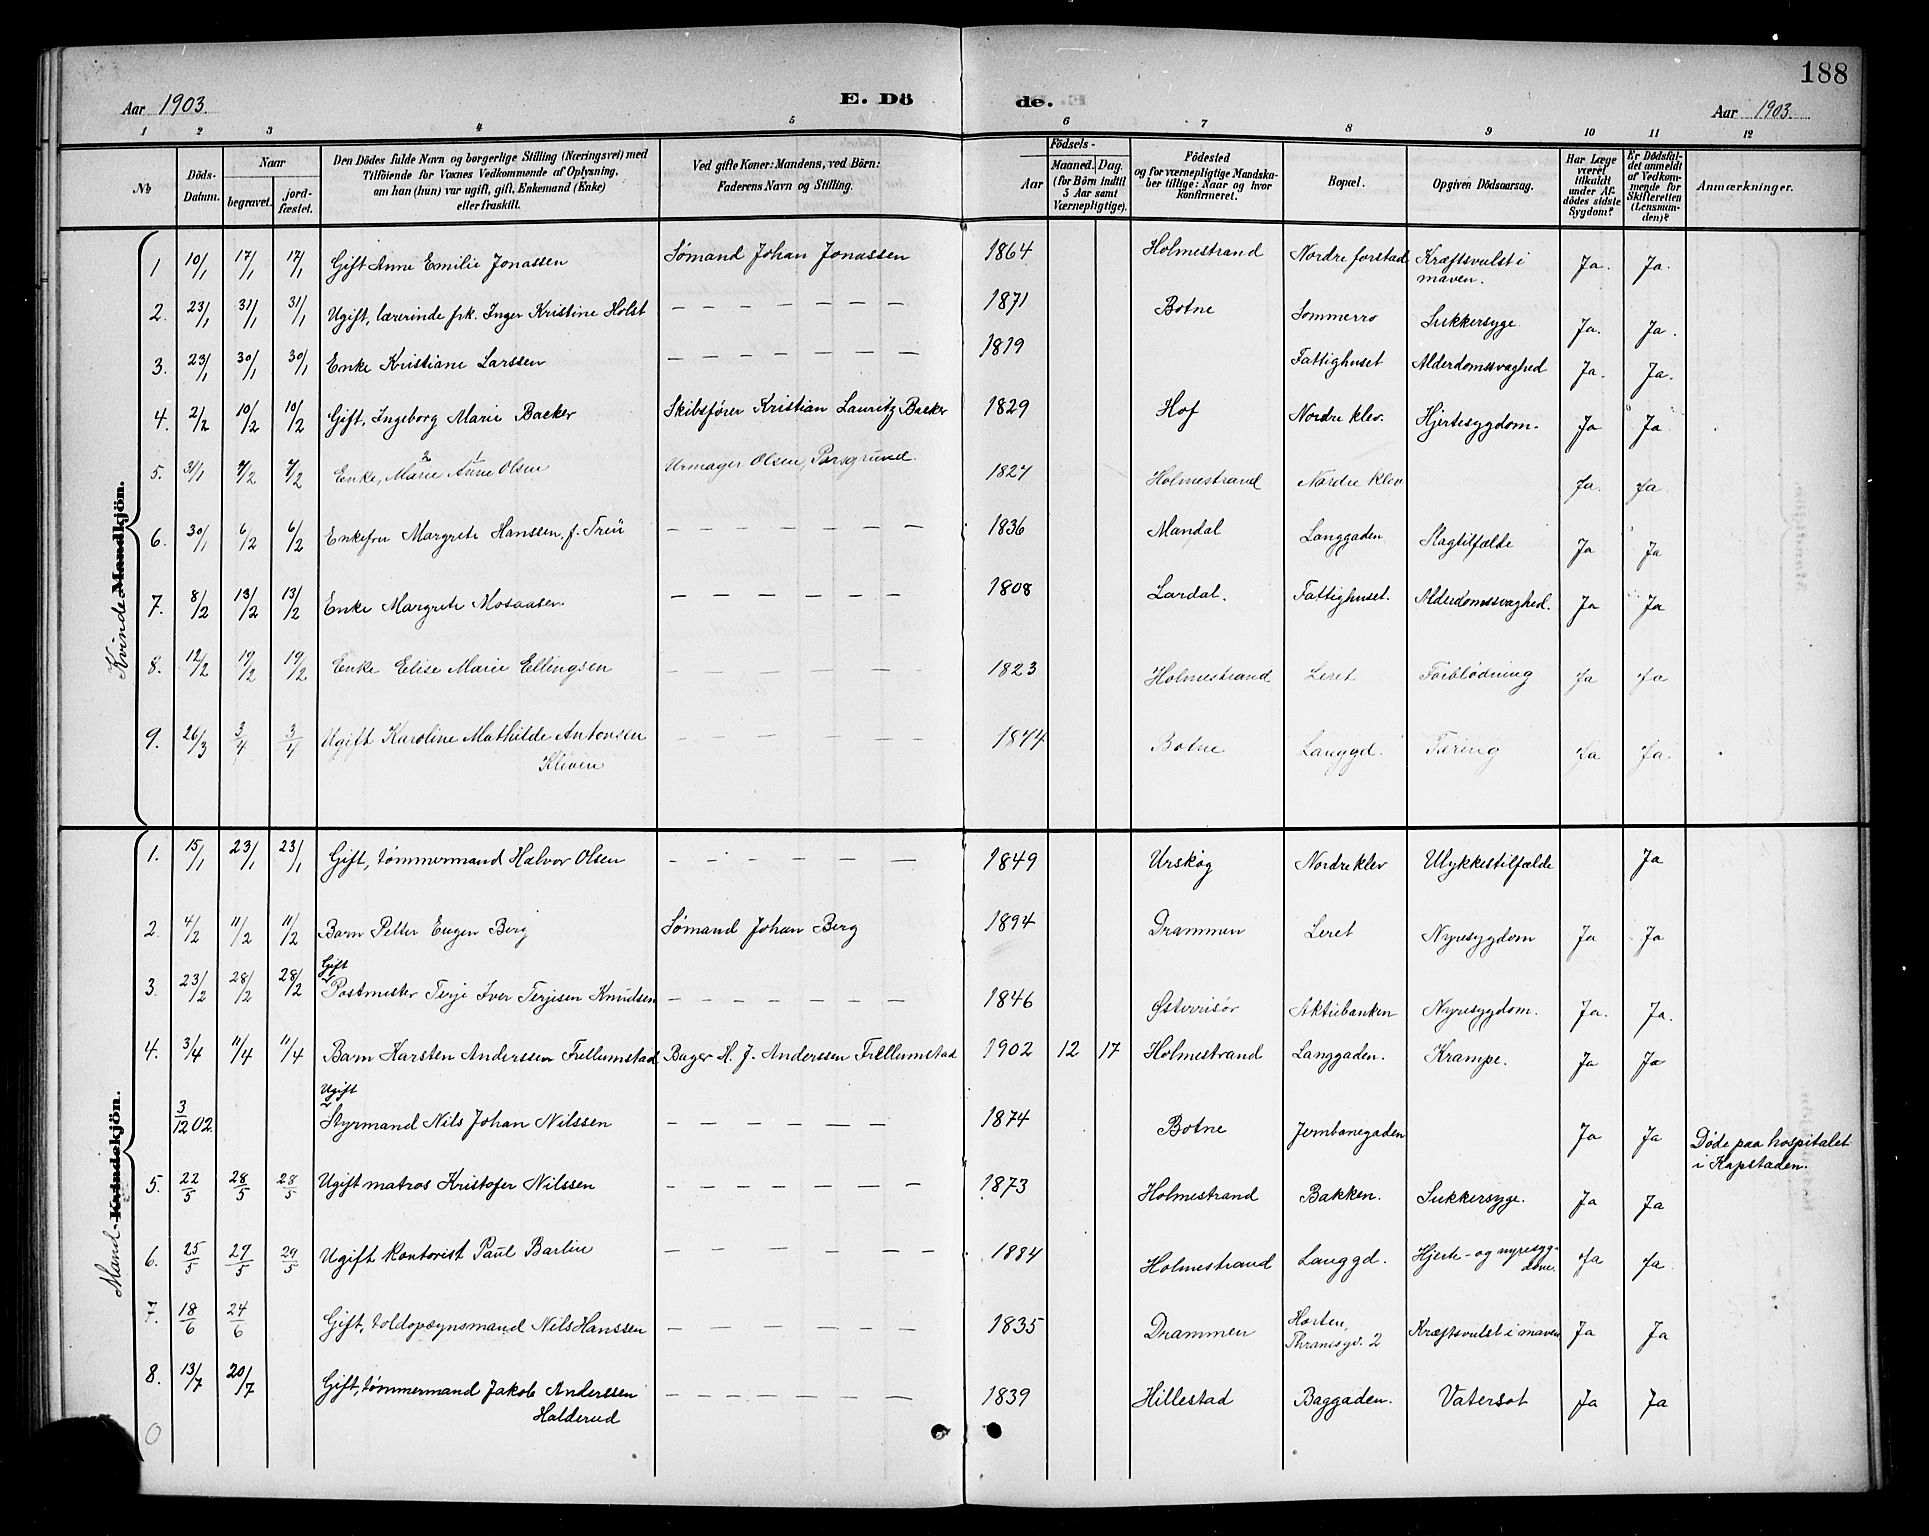 188
Aar 1903. E. Dö de. Aar 1903.
1 2 3 4 5 6 7 8 9 10 11 12
No Döds-Datum. Naar begravet. jordfæstet. Den Dödes fulde Navn og borgerlige Stilling (Næringsvei) med Tilföiende for Voxnes Vedkommende af Oplysning, om han (hun) var ugift, gift, Enkemand (Enke) eller fraskilt. Ved gifte Koner: Mandens, ved Börn: Faderens Navn og Stilling. Födsels- Aar Maaned. Dag. (for Börn indtil 5 Aar samt Værnepligtige). Födested og for værnepligtige Mandskaber tillige: Naar og hvor konfirmeret. Bopæl. Opgiven Dödsaarsag. Har Læge været tilkaldt under Afdödes sidste Sygdom? Er Dödsfaldet anmeldt af Vedkommende for Skifteretten (Lensmanden)? Anmærkninger.
Kvinde Mandkjön.
1 10/1 17/1 17/1 Gift Anne Emilie Jonassen Sømand Johan Jonassen 1864 Holmestrand Nordre forstad Kræftsvulst i maven. Ja. Ja.
2. 23/1 31/1 31/1 Ugift, lærerinde frk. Inger Kristine Holst — — — — — — 1871 Botne Sommerro Sukkersyge Ja. Ja.
3. 23/1 30/1 30/1 Enke Kristiane Larssen — — — — — — 1819 Fattighuset Alderdomssvaghed Ja. Ja.
4. 2/2 10/2 10/2 Gift, Ingeborg Marie Backer Skibsfører Kristian Lauritz Backer 1829 Hof Nordre klev. Hjertesygdom. Ja Ja
5. 31/1 7/2 7/2 Enke, Marie 2 Anne 1 Olsen Urmager Olsen, Porsgrund. 1827 Holmestrand Nordre klev Ja. Ja.
6. 30/1 6/2 6/2 Enkefru Margrete Hanssen, f. Treü — — — — — — 1836 Mandal Langgaden Slagtilfælde Ja Ja
7. 8/2 13/2 13/2 Enke Margrete Mosaasen — — — — — — 1808 Lardal. Fattighuset. Alderdomssvaghed. Ja Ja
8. 12/2 19/2 19/2 Enke Elise Marie Ellingsen — — — — — — 1823 Holmestrand Leret Forblødning Ja Ja
9. 26/3 3/4 3/4 Ugift Karoline Mathilde Antonsen Kleven — — — — — — 1844 Botne Langgd. Tæring Ja Ja.
Mand Kvindekjön.
1. 15/1 23/1 23/1 Gift, tømmermand Halvor Olsen — — — — — — 1849 Urskog Nordre klev Ulykkestilfælde Ja
2. 4/2 11/2 11/2 Barn Petter Eugen Berg Sømand Johan Berg 1894 Drammen Leret Nyresygdom Ja Ja
3. 23/2 28/2 28/2 Gift Postmester Terje Iver Terjesen Knudsen — — — — — — 1846 Østerrisør Aktiebanken Nyresygdom. Ja. Ja.
4. 3/4 11/4 11/4 Barn Karsten Anderssen Frellumstad Bager H. J. Anderssen Frellumstad 1902 12 17 Holmestrand Langgaden. Krampe. Ja Ja
3/12 02. Ugift Styrmand Nils Johan Nilssen — — — — — — 1874 Botne Jernbanegaden Ja Ja Døde paa hospitalet i Kapstaden.
5. 22/5 28/5 28/5 Ugift matros Kristofer Nilssen — — — — — — — 1873 Holmestrand Bakken. Sukkersyge. Ja Ja
6. 25/5 29/5 29/5 Ugift kontorist Paul Barlin — — — — — — — 1884 Holmestrand Langgd. Hjerte- og nyresygdom. Ja Ja
7. 18/6 24/6 Gift, toldopsynsmand Nils Hanssen — — — — — — 1835 Drammen Horten, Thranesgd. 2 Kræftsvulst i maven Ja Ja
8. 13/7 20/7 Gift, tømmermand Jakob Anderssen Halderud — — — — — — 1839 Hillestad Baggaden. Vatersot Ja Ja